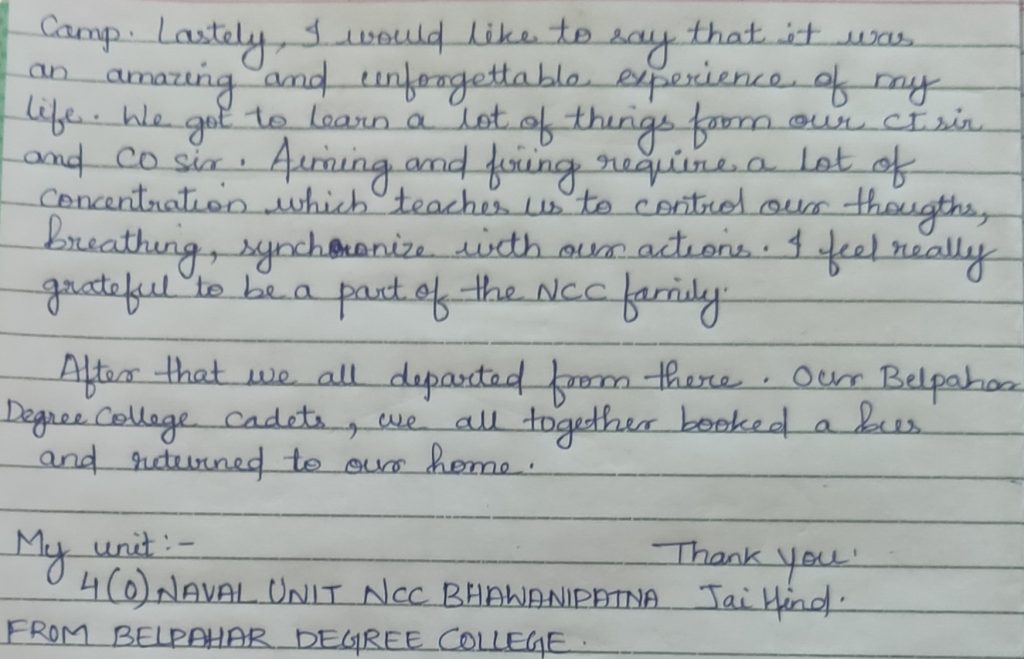 Camp. Lastely, I would like to say that it was
an amazing and unforgettable experience of my
life. We got to learn a lot of things from our CI sir
and CO sir. Aiming and firing require a lot of
concentration which teaches us to control our thougths,
breathing, synchoronize with our actions. I feel really
grateful to be a part of the NCC family.
After that we all departed from there. Our Belpahar
Degree College cadets, we all together booked a bus
and returned to our home.
My unit :-
Thank you.
4(O) NAVAL UNIT NCC BHAWANIPATNA Jai Hind.
FROM BELPAHAR DEGREE COLLEGE.